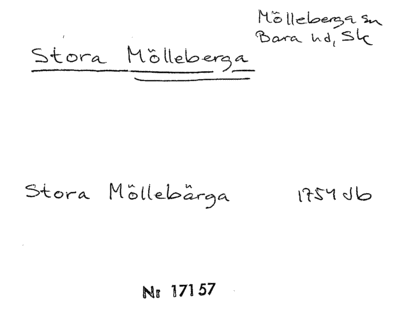 Mölleberga sn
Bara hd, Sk
Stora Mölleberga
Stora Möllebärga 1754 Jb
Nr 17157